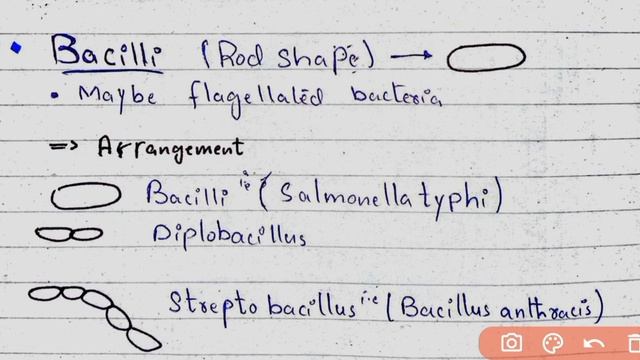 Bacilli (Rod shape) →
• Maybe flagellated bacteria
=> Arrangement
Bacilli i.e (Salmonella typhi)
Diplobacillus
Strepto bacillus i.e (Bacillus anthracis)